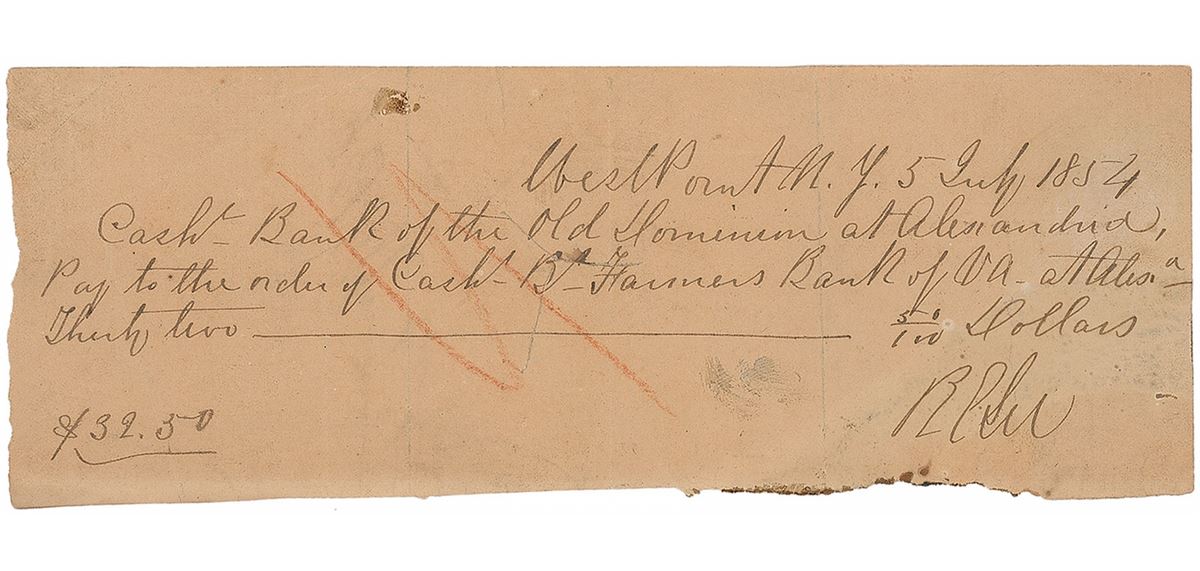 West Point N. Y. 5 July 1854
Cashr Bank of the Old Dominion at Alexandria,
Pay to the order of Cashr Br Farmers Bank of VA at Alexa
Thirty two 50/100 Dollars
$32.50
R E Lee